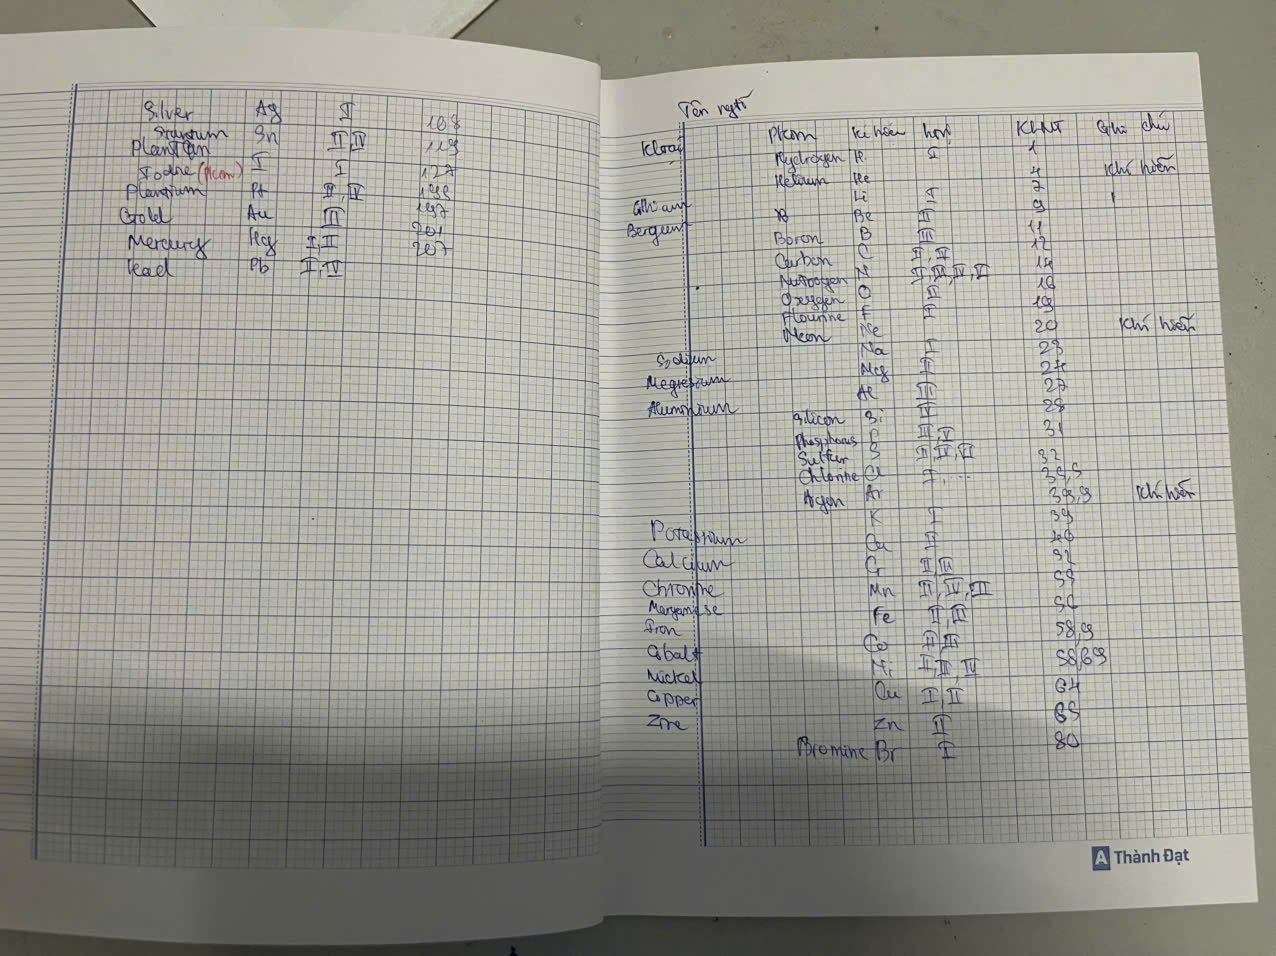 Silver Ag I 108
Sn II IV 119
Iodine (Pkom) I I 127
Plantium Pt II, IV 195
Gold Au III 197
Mercury Hg I II 201
Lead Pb II, IV 207
Tên ngtố
Kloại Pkom Kí hiệu htrị KLNT Ghi chú
Hydrogen H I 1
Helium He 4 Khí hiếm
Lithium Li I 7
Be II 9
Boron B III 11
Carbon C II, IV 12
Nitrogen N 14
Oxygen O II 16
Flourine F I 19
Neon Ne 20 Khí hiếm
Sodium Na I 23
Megnesium Mg II 24
Aluminium Al III 27
Silicon Si IV 28
Phosphorus P III, V 31
Sulfur S II, IV, VI 32
Chlorine Cl I, ... 35,5
Agon Ar 39,9 Khí hiếm
Potassium K I 39
Calcium Ca II 40
Cr II III 52
Manganese Mn II, IV, VII 55
Iron Fe II, III 56
Cobalt Co II, III 58,9
Nickel Ni 58,69
Copper Cu I, II 64
Zinc Zn II 65
Bromine Br I 80
A Thành Đạt